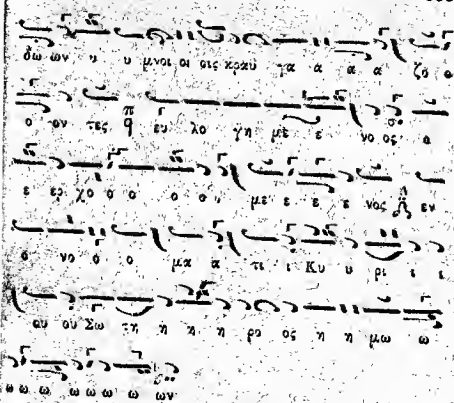 δω ων υ υ μνοι οι οις κραυ γα α α α ζο ο
ο ον τες ευ λο γη με ε νο ος ο
ε ερ χο ο ο ο ο με ε ε ε νος εν
ο νο ο ο μα α τι ι Κυ υ ρι ι ι
ου ου Σω τη η η η η ρο ος η η μω ω
ω ω ω ω ω ω ω ων